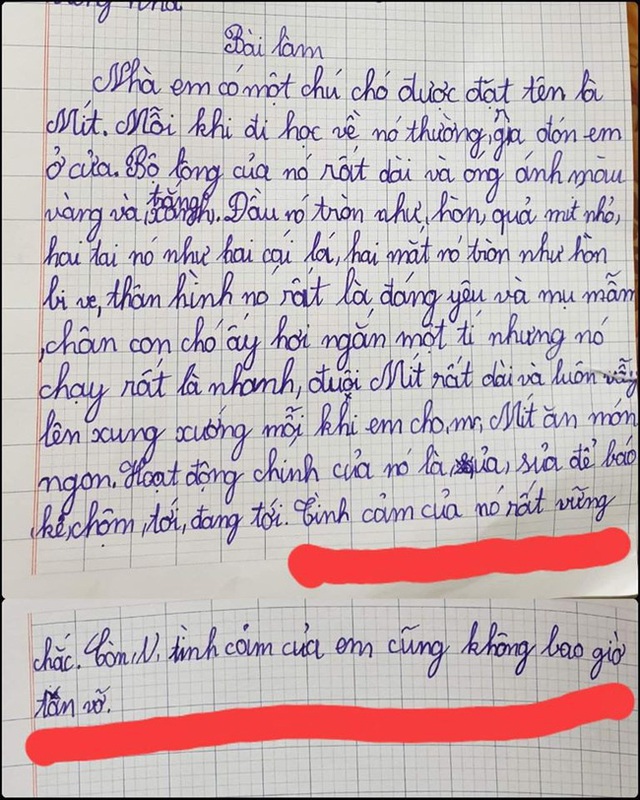 Bài làm
Nhà em có một chú chó được đặt tên là
Mít. Mỗi khi đi học về nó thường, ra đón em
ở cửa. Bộ lông của nó rất dài và óng ánh màu
vàng và, trắng. Đầu nó tròn như, hòn, quả mít nhỏ,
hai tai nó như hai cái lá, hai mắt nó tròn như hòn
bi ve, thân hình nó rất là đáng yêu và mụ mẫm
, chân con chó ấy hơi ngắn một tí nhưng nó
chạy rất là nhanh, đuôi Mít rất dài và luôn vẫy
lên xung xuống mỗi khi em cho, mr, Mít ăn món
ngon. Hoạt động chính của nó là, sủa, sủa để báo
kẻ, chộm, tới, đang tới. Tình cảm của nó rất vững
chắc. Còn, N, tình cảm của em cũng không bao giờ
tan vỡ.